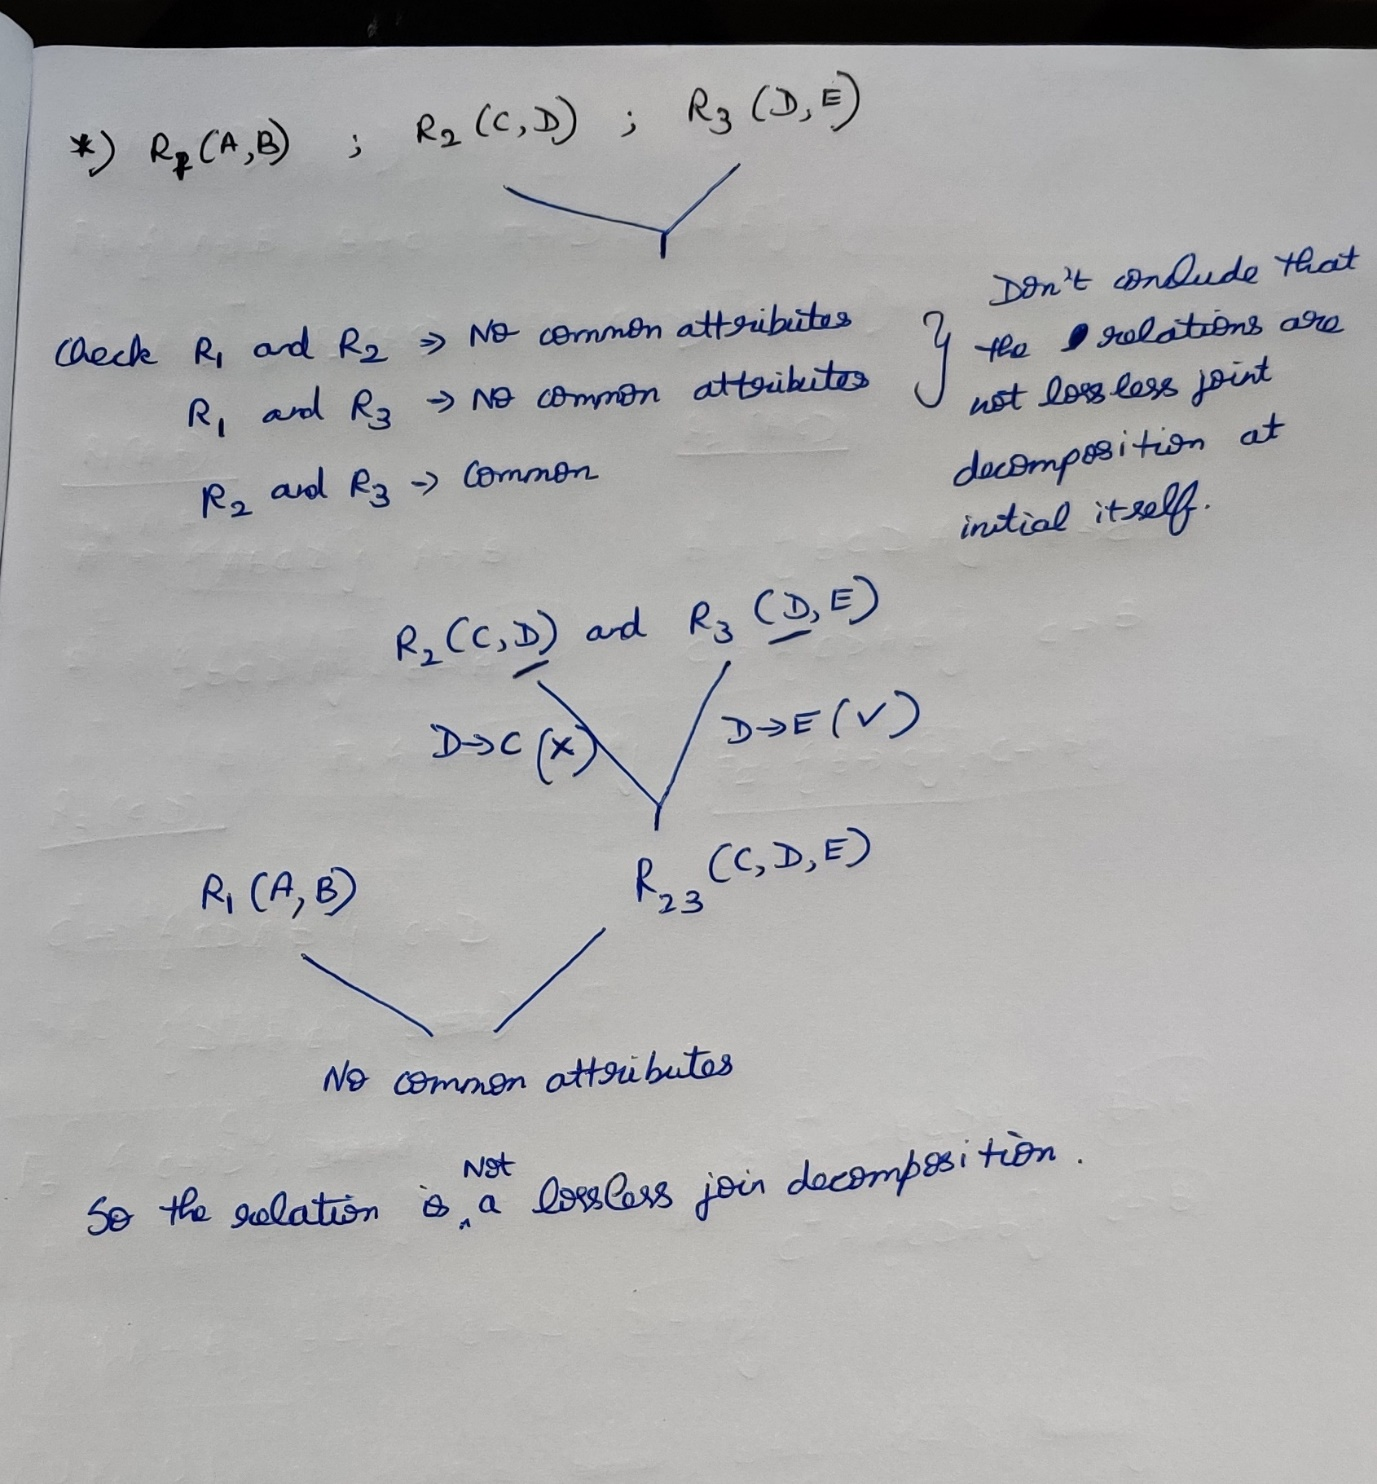 *) R1 (A,B) ; R2 (C,D) ; R3 (D,E)
Check R1 and R2 → No common attributes
R1 and R3 → No common attributes
R2 and R3 → Common
} Don't conclude that
the relations are
not lossless joint
decomposition at
initial itself.
R2 (C,D) and R3 (D,E)
D→C (x) D→E (✓)
R1 (A,B) R23 (C,D,E)
No common attributes
So the relation is ^Not a lossless join decomposition.